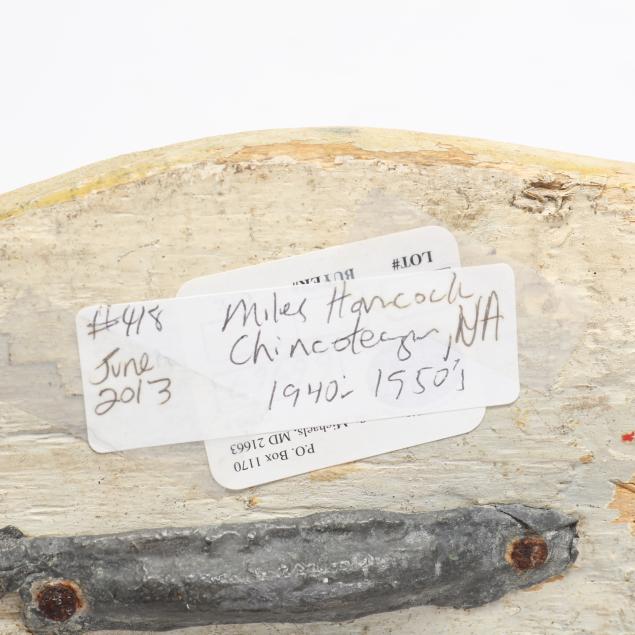 #418
June
2013
Miles Hancock
Chincoteague, VA
1940's 1950's
LOT#
BUYER#
Michaels, MD 21663
P.O. Box 1170